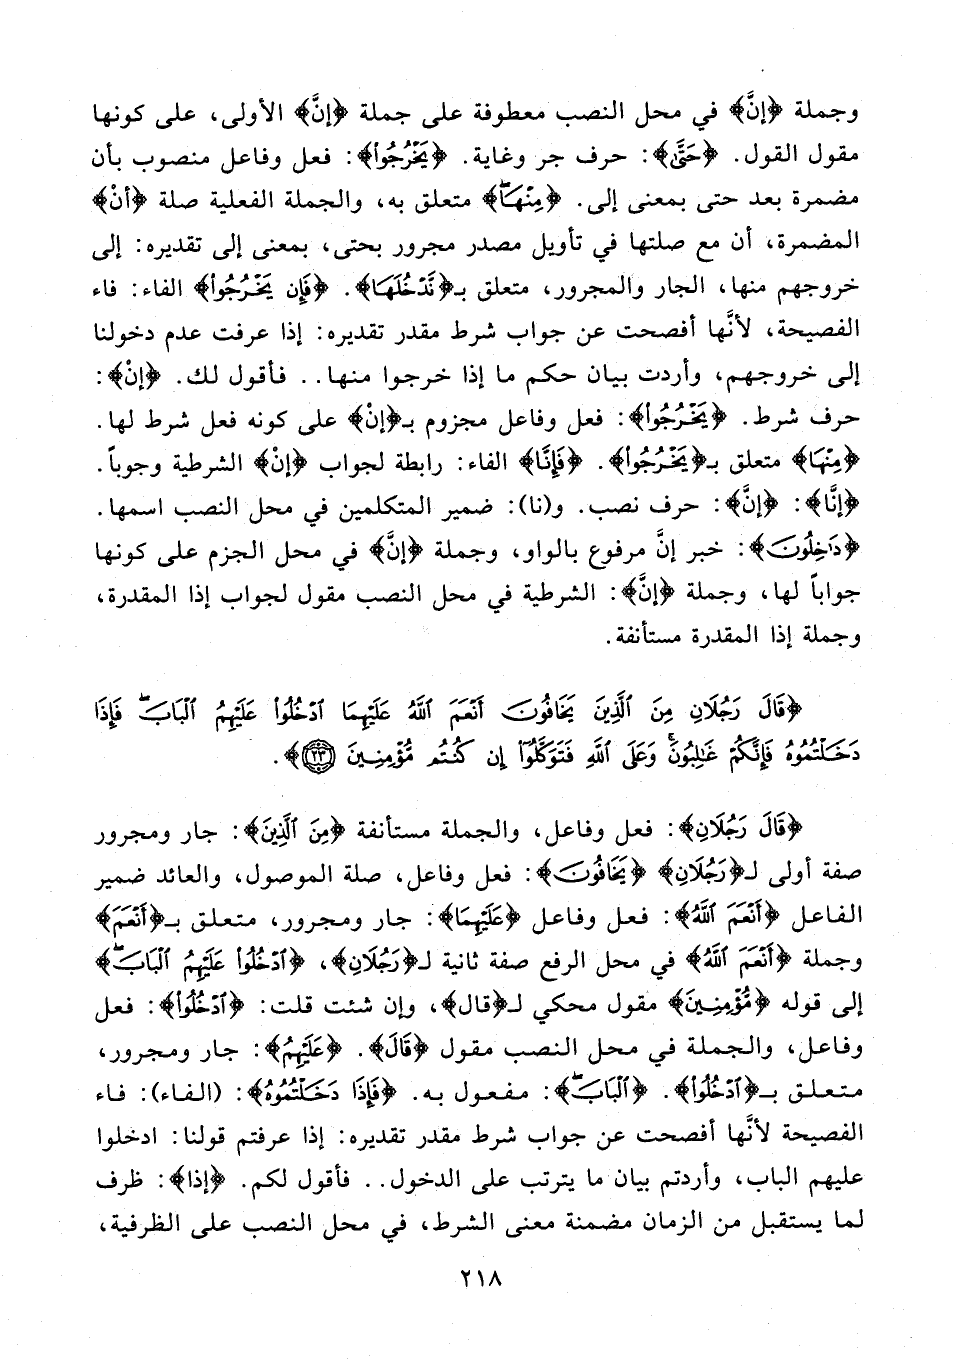 وجملة ﴿إنَّ﴾ في محل النصب معطوفة على جملة ﴿إنَّ﴾ الأولى، على كونها
مقول القول. ﴿حَتَّى﴾: حرف جر وغاية. ﴿يَخْرُجُوا۟﴾: فعل وفاعل منصوب بأن
مضمرة بعد حتى بمعنى إلى. ﴿مِنْهَا ۖ﴾ متعلق به، والجملة الفعلية صلة ﴿أنْ﴾
المضمرة، أن مع صلتها في تأويل مصدر مجرور بحتى، بمعنى إلى تقديره: إلى
خروجهم منها، الجار والمجرور، متعلق بـ﴿نَّدْخُلَهَا﴾. ﴿فَإِن يَخْرُجُوا۟﴾ الفاء: فاء
الفصيحة، لأنَّها أفصحت عن جواب شرط مقدر تقديره: إذا عرفت عدم دخولنا
إلى خروجهم، وأردت بيان حكم ما إذا خرجوا منها.. فأقول لك. ﴿إنْ﴾:
حرف شرط. ﴿يَخْرُجُوا۟﴾: فعل وفاعل مجزوم بـ﴿إنْ﴾ على كونه فعل شرط لها.
﴿مِنْهَا﴾ متعلق بـ﴿يَخْرُجُوا۟﴾. ﴿فَإِنَّا﴾ الفاء: رابطة لجواب ﴿إنْ﴾ الشرطية وجوباً.
﴿إنَّا﴾: ﴿إنَّ﴾: حرف نصب. و(نا): ضمير المتكلمين في محل النصب اسمها.
﴿دَٰخِلُونَ﴾: خبر إنَّ مرفوع بالواو، وجملة ﴿إنَّ﴾ في محل الجزم على كونها
جواباً لها، وجملة ﴿إنَّ﴾: الشرطية في محل النصب مقول لجواب إذا المقدرة،
وجملة إذا المقدرة مستأنفة.
﴿قَالَ رَجُلَانِ مِنَ ٱلَّذِينَ يَخَافُونَ أَنْعَمَ ٱللَّهُ عَلَيْهِمَا ٱدْخُلُوا۟ عَلَيْهِمُ ٱلْبَابَ ۖ فَإِذَا
دَخَلْتُمُوهُ فَإِنَّكُمْ غَٰلِبُونَ ۚ وَعَلَى ٱللَّهِ فَتَوَكَّلُوٓا۟ إِن كُنتُم مُّؤْمِنِينَ ﴿٢٣﴾﴾.
﴿قَالَ رَجُلَانِ﴾: فعل وفاعل، والجملة مستأنفة ﴿مِنَ ٱلَّذِينَ﴾: جار ومجرور
صفة أولى لـ﴿رَجُلَانِ﴾ ﴿يَخَافُونَ﴾: فعل وفاعل، صلة الموصول، والعائد ضمير
الفاعل ﴿أَنْعَمَ ٱللَّهُ﴾: فعل وفاعل ﴿عَلَيْهِمَا﴾: جار ومجرور، متعلق بـ﴿أَنْعَمَ﴾
وجملة ﴿أَنْعَمَ ٱللَّهُ﴾ في محل الرفع صفة ثانية لـ﴿رَجُلَانِ﴾، ﴿ٱدْخُلُوا۟ عَلَيْهِمُ ٱلْبَابَ ۖ﴾
إلى قوله ﴿مُّؤْمِنِينَ﴾ مقول محكي لـ﴿قال﴾، وإن شئت قلت: ﴿ٱدْخُلُوا۟﴾: فعل
وفاعل، والجملة في محل النصب مقول ﴿قَالَ﴾. ﴿عَلَيْهِمُ﴾: جار ومجرور،
متعلق بـ﴿ٱدْخُلُوا۟﴾. ﴿ٱلْبَابَ ۖ﴾: مفعول به. ﴿فَإِذَا دَخَلْتُمُوهُ﴾: (الفاء): فاء
الفصيحة لأنَّها أفصحت عن جواب شرط مقدر تقديره: إذا عرفتم قولنا: ادخلوا
عليهم الباب، وأردتم بيان ما يترتب على الدخول.. فأقول لكم. ﴿إذا﴾: ظرف
لما يستقبل من الزمان مضمنة معنى الشرط، في محل النصب على الظرفية،
٢١٨